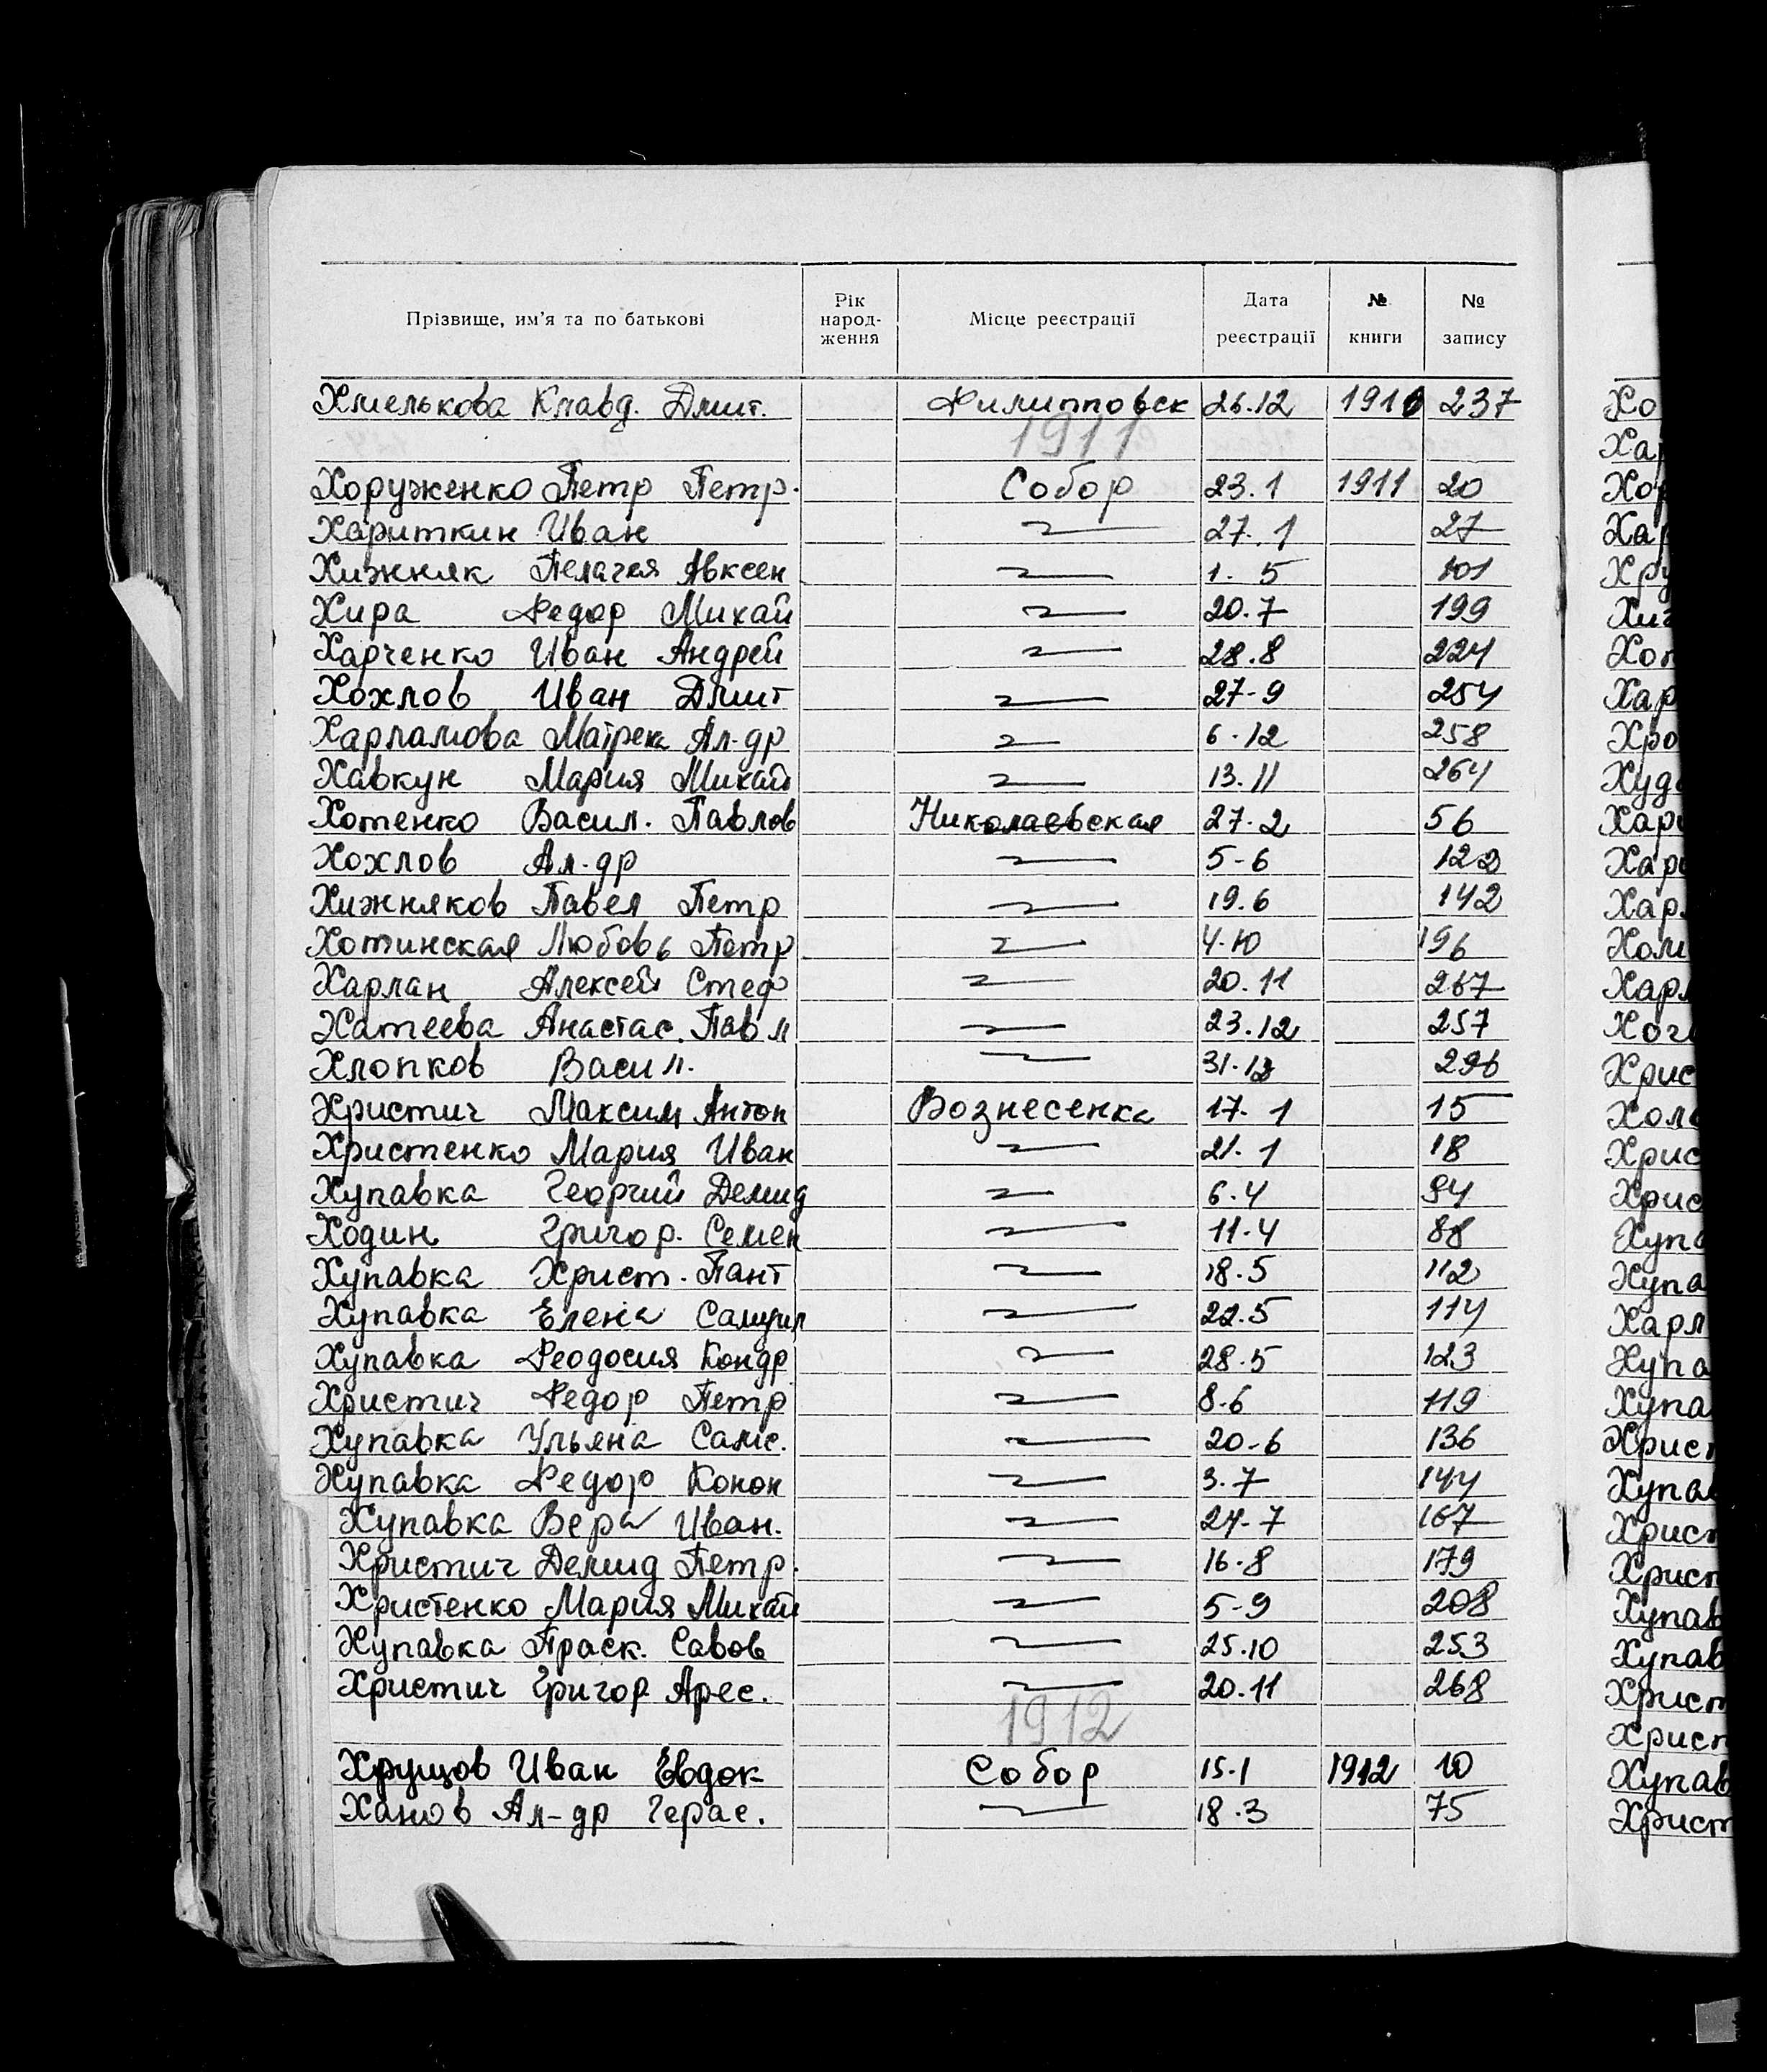 Прізвище, им'я та по батькові Рік народ-ження Місце реєстрації Дата реєстрації № книги № запису
Хмелькова Клавд. Дмит. Филипповск 26.12 1910 237
1911
Хоруженко Петр Петр. Собор 23.1 1911 20
Хариткин Иван 27.1 27
Хижняк Пелагея Авксен 1.5 101
Хира Федор Михай 20.7 199
Харченко Иван Андрей 28.8 224
Хохлов Иван Дмит 27-9 254
Харламова Матрена Ал-др 6.12 258
Хавкун Мария Михай 13.11 264
Хотенко Васил. Павлов Николаевская 27.2 56
Хохлов Ал-др 5-6 122
Хижняков Павел Петр 19.6 142
Хотинская Любовь Петр 4.10 196
Харлан Алексей Стеф 20.11 267
Хатеева Анастас. Павл 23.12 257
Хлопков Васил. 31.12 296
Христич Максим Антон Вознесенка 17.1 15
Христенко Мария Иван 21.1 18
Хупавка Георгий Демид 6.4 94
Ходин Григор. Семен 11.4 88
Хупавка Христ. Пант 18.5 112
Хупавка Елена Самуил 22.5 114
Хупавка Феодосия Кондр 28.5 123
Христич Федор Петр 8-6 119
Хупавка Ульяна Самс. 20-6 136
Хупавка Федор Конон 3.7 144
Хупавка Вера Иван. 24-7 167
Христич Демид Петр. 16-8 179
Христенко Мария Михай 5-9 208
Хупавка Праск. Савов 25.10 253
Христич Григор. Арес. 20.11 268
1912
Хрущов Иван Евдок Собор 15.1 1912 10
Ханов Ал-др Герас. 18.3 75